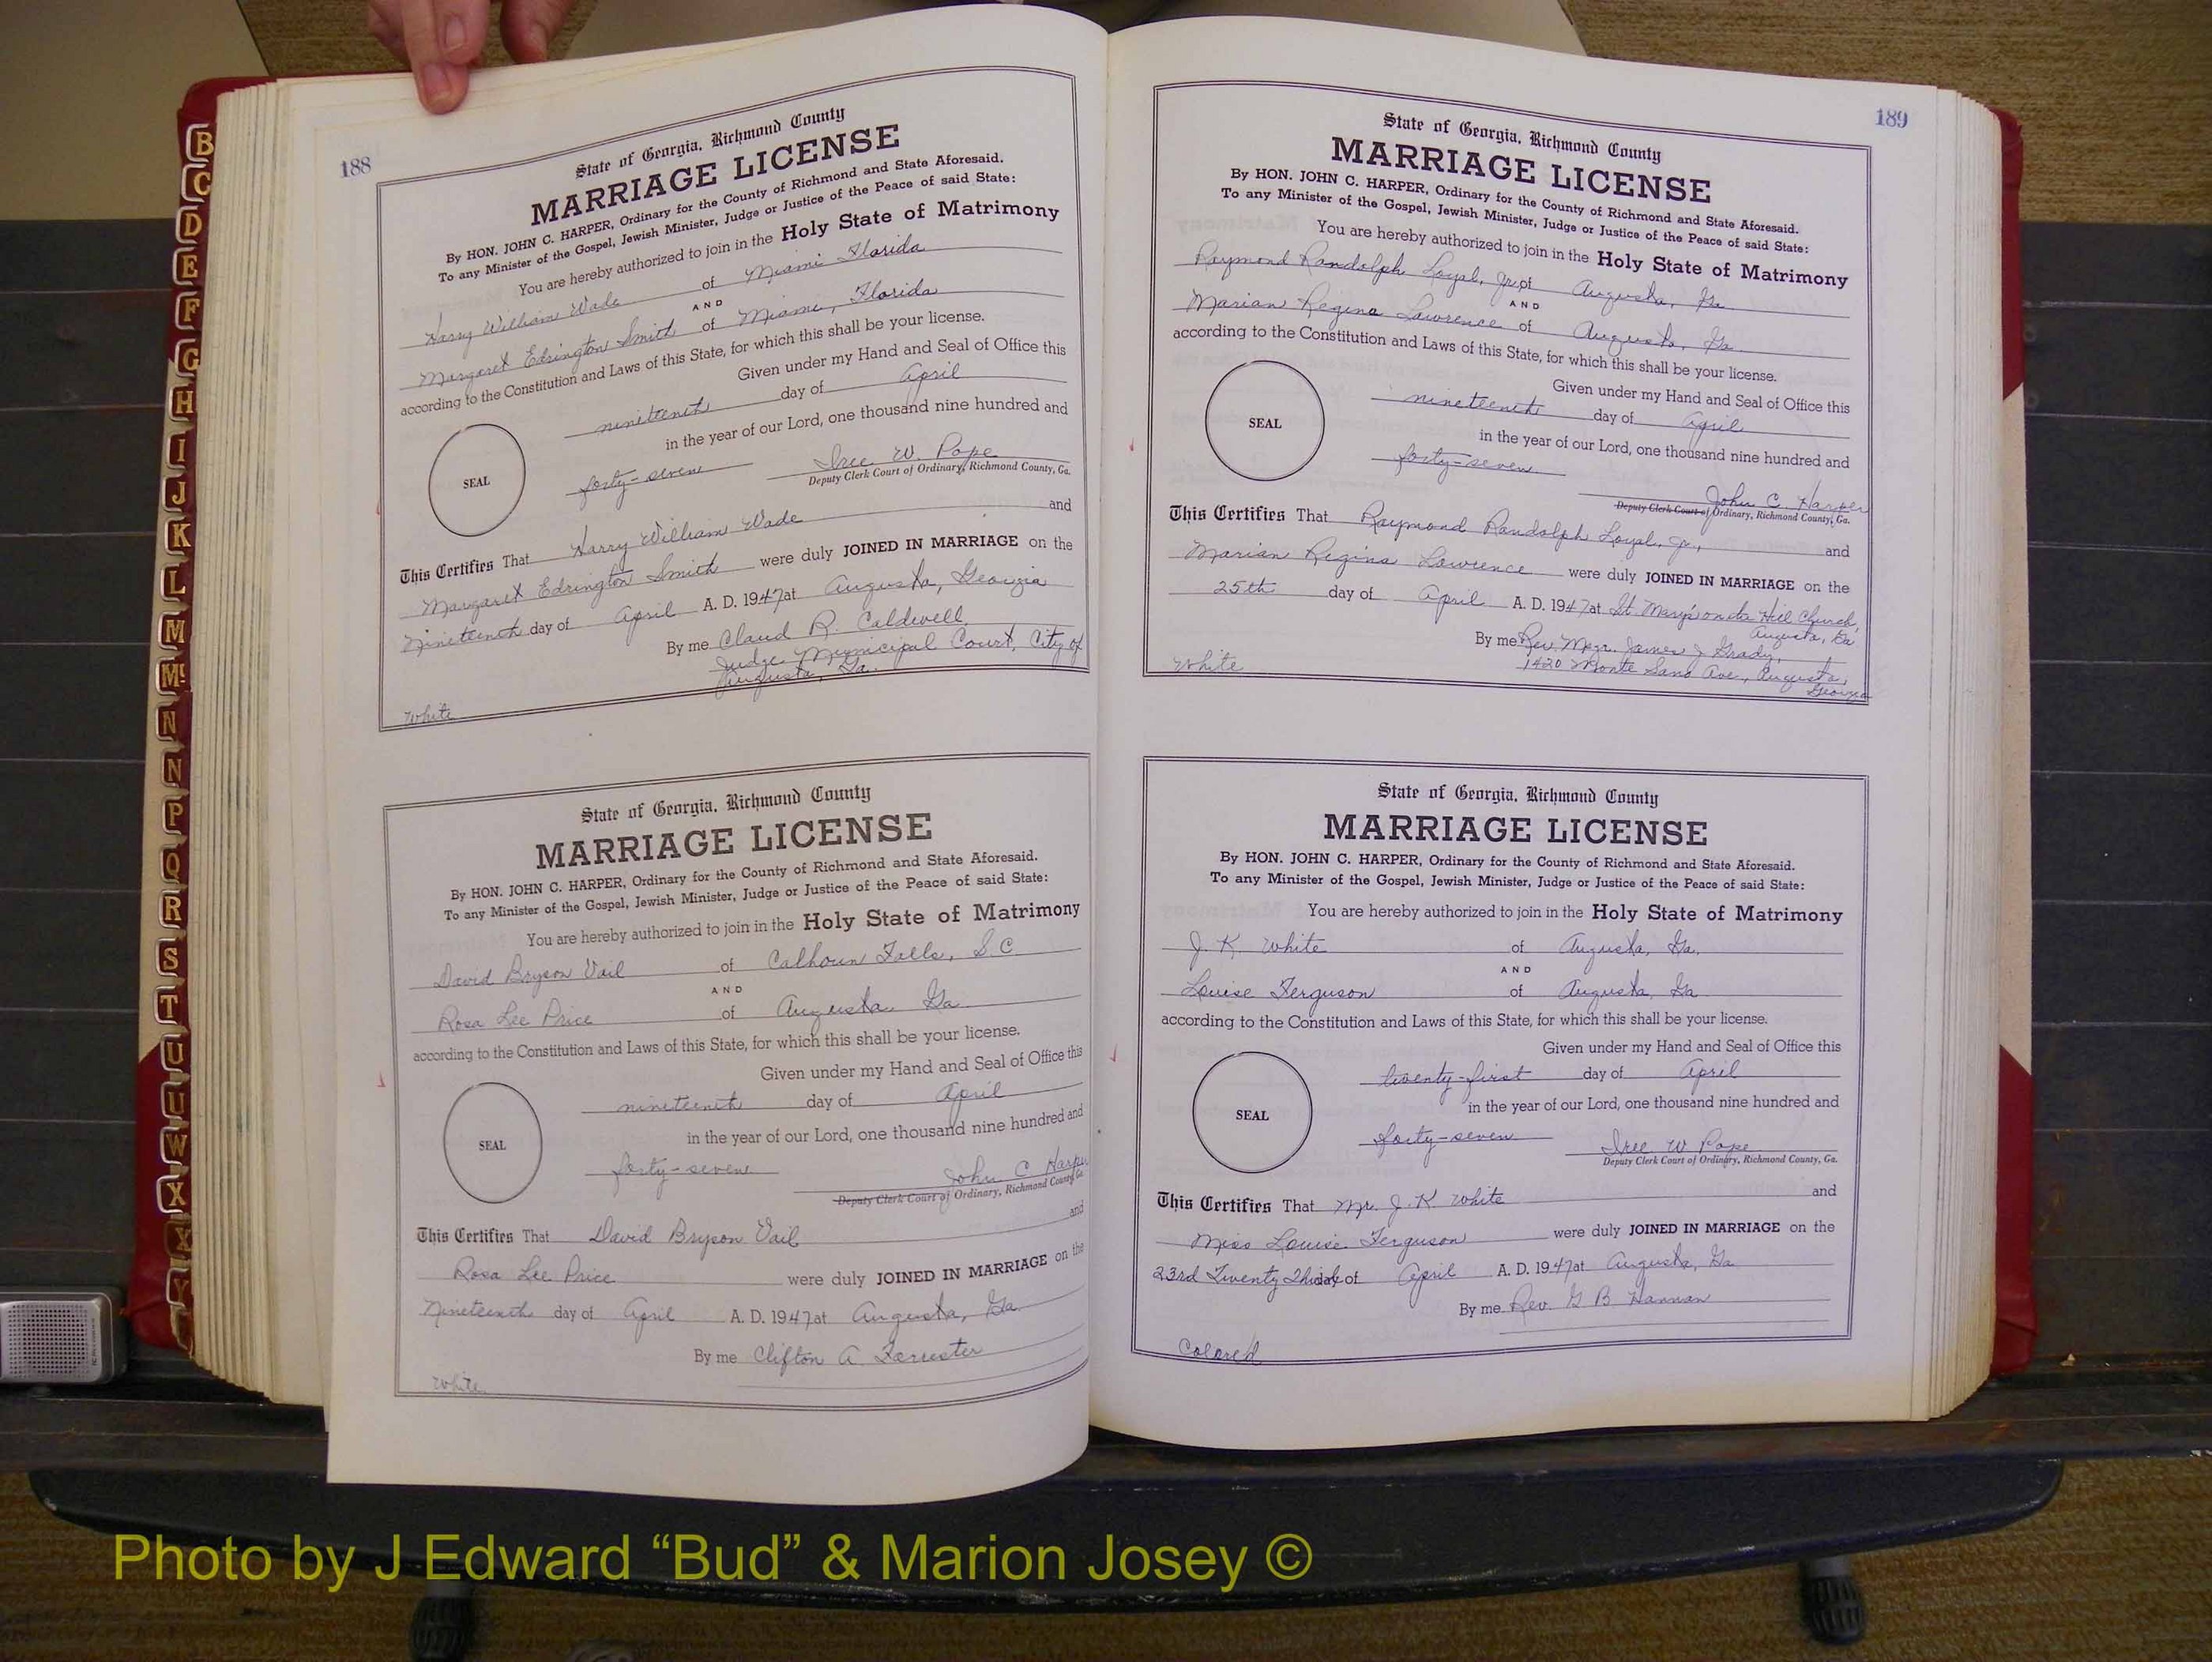 B
C
D
E
F
G
H
I
J
K
L
M
Mc
N
N
P
Q
R
S
T
U
U
W
X
X
Y
188
State of Georgia, Richmond County
MARRIAGE LICENSE
By HON. JOHN C. HARPER, Ordinary for the County of Richmond and State Aforesaid.
To any Minister of the Gospel, Jewish Minister, Judge or Justice of the Peace of said State:
You are hereby authorized to join in the Holy State of Matrimony
Harry William Wade of Miami Florida
AND
Margaret Edrington Smith of Miami, Florida
according to the Constitution and Laws of this State, for which this shall be your license.
Given under my Hand and Seal of Office this
nineteenth day of April
in the year of our Lord, one thousand nine hundred and
SEAL
forty-seven Iree W. Pope
Deputy Clerk Court of Ordinary, Richmond County, Ga.
This Certifies That Harry William Wade and
Margaret Edrington Smith were duly JOINED IN MARRIAGE on the
Nineteenth day of April A. D. 1947 at Augusta, Georgia
By me Claud R. Caldwell
Judge Municipal Court, City of
Augusta, Ga.
White
State of Georgia, Richmond County
MARRIAGE LICENSE
By HON. JOHN C. HARPER, Ordinary for the County of Richmond and State Aforesaid.
To any Minister of the Gospel, Jewish Minister, Judge or Justice of the Peace of said State:
You are hereby authorized to join in the Holy State of Matrimony
David Bryson Vail of Calhoun Falls, S.C
AND
Rosa Lee Price of Augusta Ga
according to the Constitution and Laws of this State, for which this shall be your license.
Given under my Hand and Seal of Office this
nineteenth day of April
in the year of our Lord, one thousand nine hundred and
SEAL
forty-seven John C Harper
Deputy Clerk Court of Ordinary, Richmond County, Ga.
This Certifies That David Bryson Vail and
Rosa Lee Price were duly JOINED IN MARRIAGE on the
Nineteenth day of April A. D. 1947 at Augusta, Ga.
By me Clifton A Forrester
White
189
State of Georgia, Richmond County
MARRIAGE LICENSE
By HON. JOHN C. HARPER, Ordinary for the County of Richmond and State Aforesaid.
To any Minister of the Gospel, Jewish Minister, Judge or Justice of the Peace of said State:
You are hereby authorized to join in the Holy State of Matrimony
Raymond Randolph Loyal, Jr, of Augusta, Ga
AND
Marian Regina Lawrence of Augusta, Ga
according to the Constitution and Laws of this State, for which this shall be your license.
Given under my Hand and Seal of Office this
nineteenth day of April
in the year of our Lord, one thousand nine hundred and
SEAL
forty-seven John C. Harper
Deputy Clerk Court of Ordinary, Richmond County, Ga.
This Certifies That Raymond Randolph Loyal, Jr., and
Marian Regina Lawrence were duly JOINED IN MARRIAGE on the
25th day of April A. D. 1947 at St Mary's on the Hill Church,
Augusta, Ga
By me Rev. Msgr. James J Grady,
1420 Monte Sano Ave., Augusta,
Georgia
White
State of Georgia, Richmond County
MARRIAGE LICENSE
By HON. JOHN C. HARPER, Ordinary for the County of Richmond and State Aforesaid.
To any Minister of the Gospel, Jewish Minister, Judge or Justice of the Peace of said State:
You are hereby authorized to join in the Holy State of Matrimony
J. K White of Augusta, Ga.
AND
Louise Ferguson of Augusta, Ga
according to the Constitution and Laws of this State, for which this shall be your license.
Given under my Hand and Seal of Office this
twenty-first day of April
in the year of our Lord, one thousand nine hundred and
SEAL
forty-seven Iree W Pope
Deputy Clerk Court of Ordinary, Richmond County, Ga.
This Certifies That Mr. J. K White and
Miss Louise Ferguson were duly JOINED IN MARRIAGE on the
23rd Twenty Third day of April A. D. 1947 at Augusta, Ga
By me Rev. G B Hannan
Colored
Photo by J Edward “Bud” & Marion Josey ©